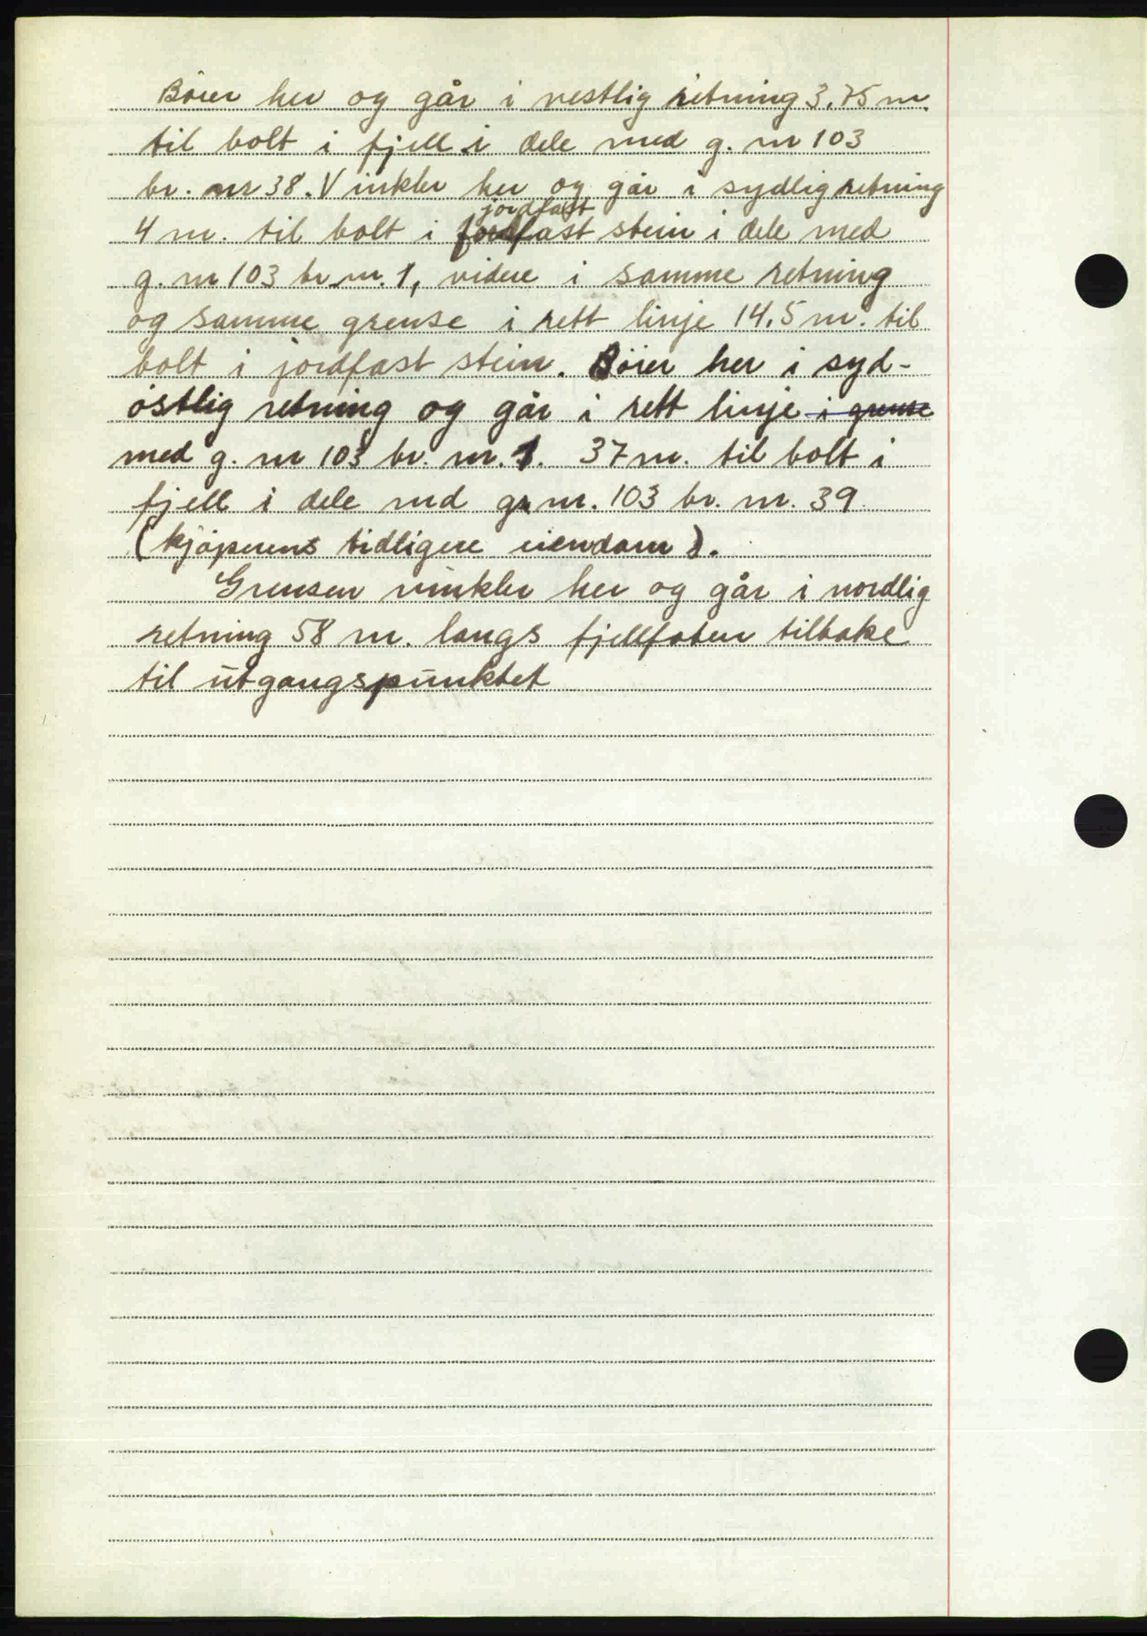 Böier her og går i vestlig retning 3.75 m.
til bolt i fjell i dele med g. nr 103
br. nr 38. Vinkler her og går i sydlig retning
jordfast
4 m. til bolt i jordfast stein i dele med
g. nr 103 br. nr. 1, videre i samme retning
og samme grense i rett linje 14.5 m. til
bolt i jordfast stein. Böier her i syd-
östlig retning og går i rett linje i grense
med g. nr 103 br. nr. 1. 37 m. til bolt i
fjell i dele md g. nr. 103 br. nr. 39
(kjöperens tidligere eiendom).
Grensen vinkler her og går i nordlig
retning 58 m. langs fjellfoten tilbake
til utgangspunktet